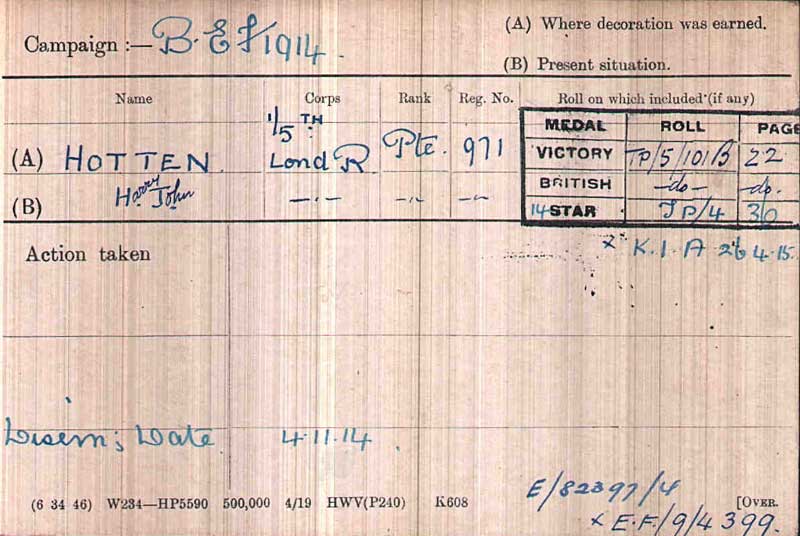 Campaign :— B.E.F 1914.
(A) Where decoration was earned.
(B) Present situation.
Name Corps Rank Reg. No. Roll on which included (if any)
MEDAL ROLL PAGE
(A) HOTTEN. 1/5TH Lond R Pte. 971
VICTORY TP/5/101B 22
(B) Harry John —·— —"— —"—
BRITISH —do— —do.
14 STAR TP/4 30
Action taken
x K.I.A 26.4.15.
Disem; Date 4.11.14.
E/82397/4
(6 34 46) W234—HP5590 500,000 4/19 HWV(P240) K608 [OVER.
x E.F./9/4399.